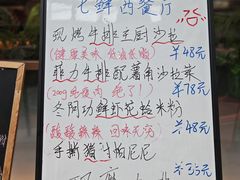 七鲜西餐厅
现烤牛排王厨沙拉
(健康美味 低脂低脂)
￥48元
菲力牛排配薯角沙拉炭
(200g 绝了!)
￥78元
冬阴功鲜虾花蛤米粉
(酸酸辣辣 回味无穷)
￥48元
手撕猪肉帕尼尼
￥35元